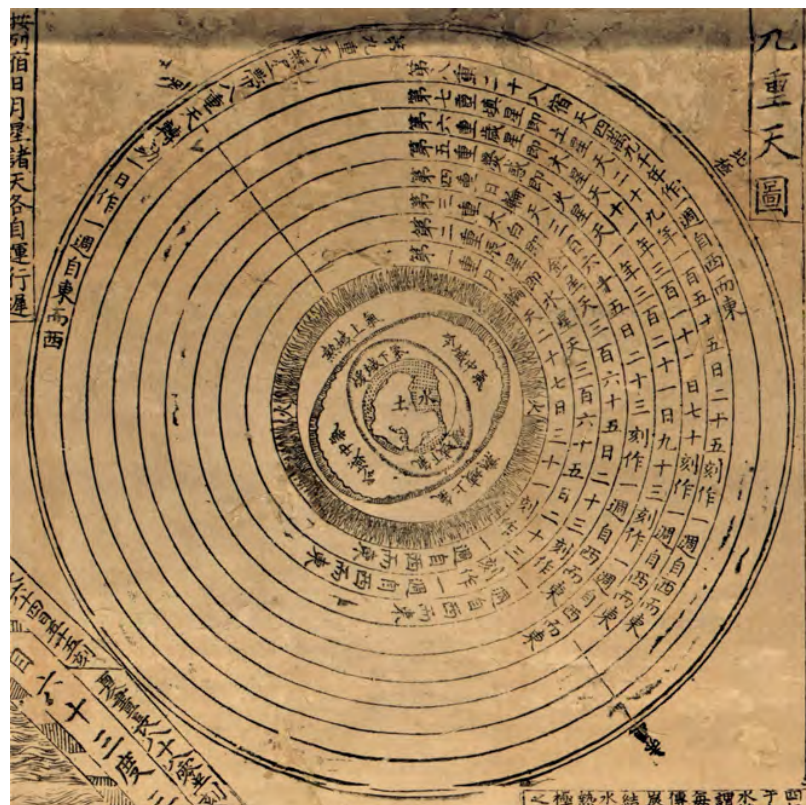 九重天圖
按列宿日月星諸天各自運行遲
北極
第九重天無星帶八重天轉動一日作一週自東而西
第八重二十八宿天四萬九千年作一週自西而東
第七重填星即土星天二十九年一百五十五日二十五刻作一週自西而東
第六重歲星即木星天十一年三百一十三日七十刻作一週自西而東
第五重熒惑即火星天一年三百二十一日九十三刻作一週自西而東
第四重日輪天三百六十五日二十三刻作一週自西而東
第三重太白即金星天三百六十五日二十三刻作一週自西而東
第二重辰星即水星天三百六十五日二十三刻作一週自西而東
第一重月輪天二十七日三十一刻作一週自西而東
火
火
熱域上氣
冷域中氣
煖域下氣
水
土
煖域下氣
冷域中氣
熱域上氣
六十三度三